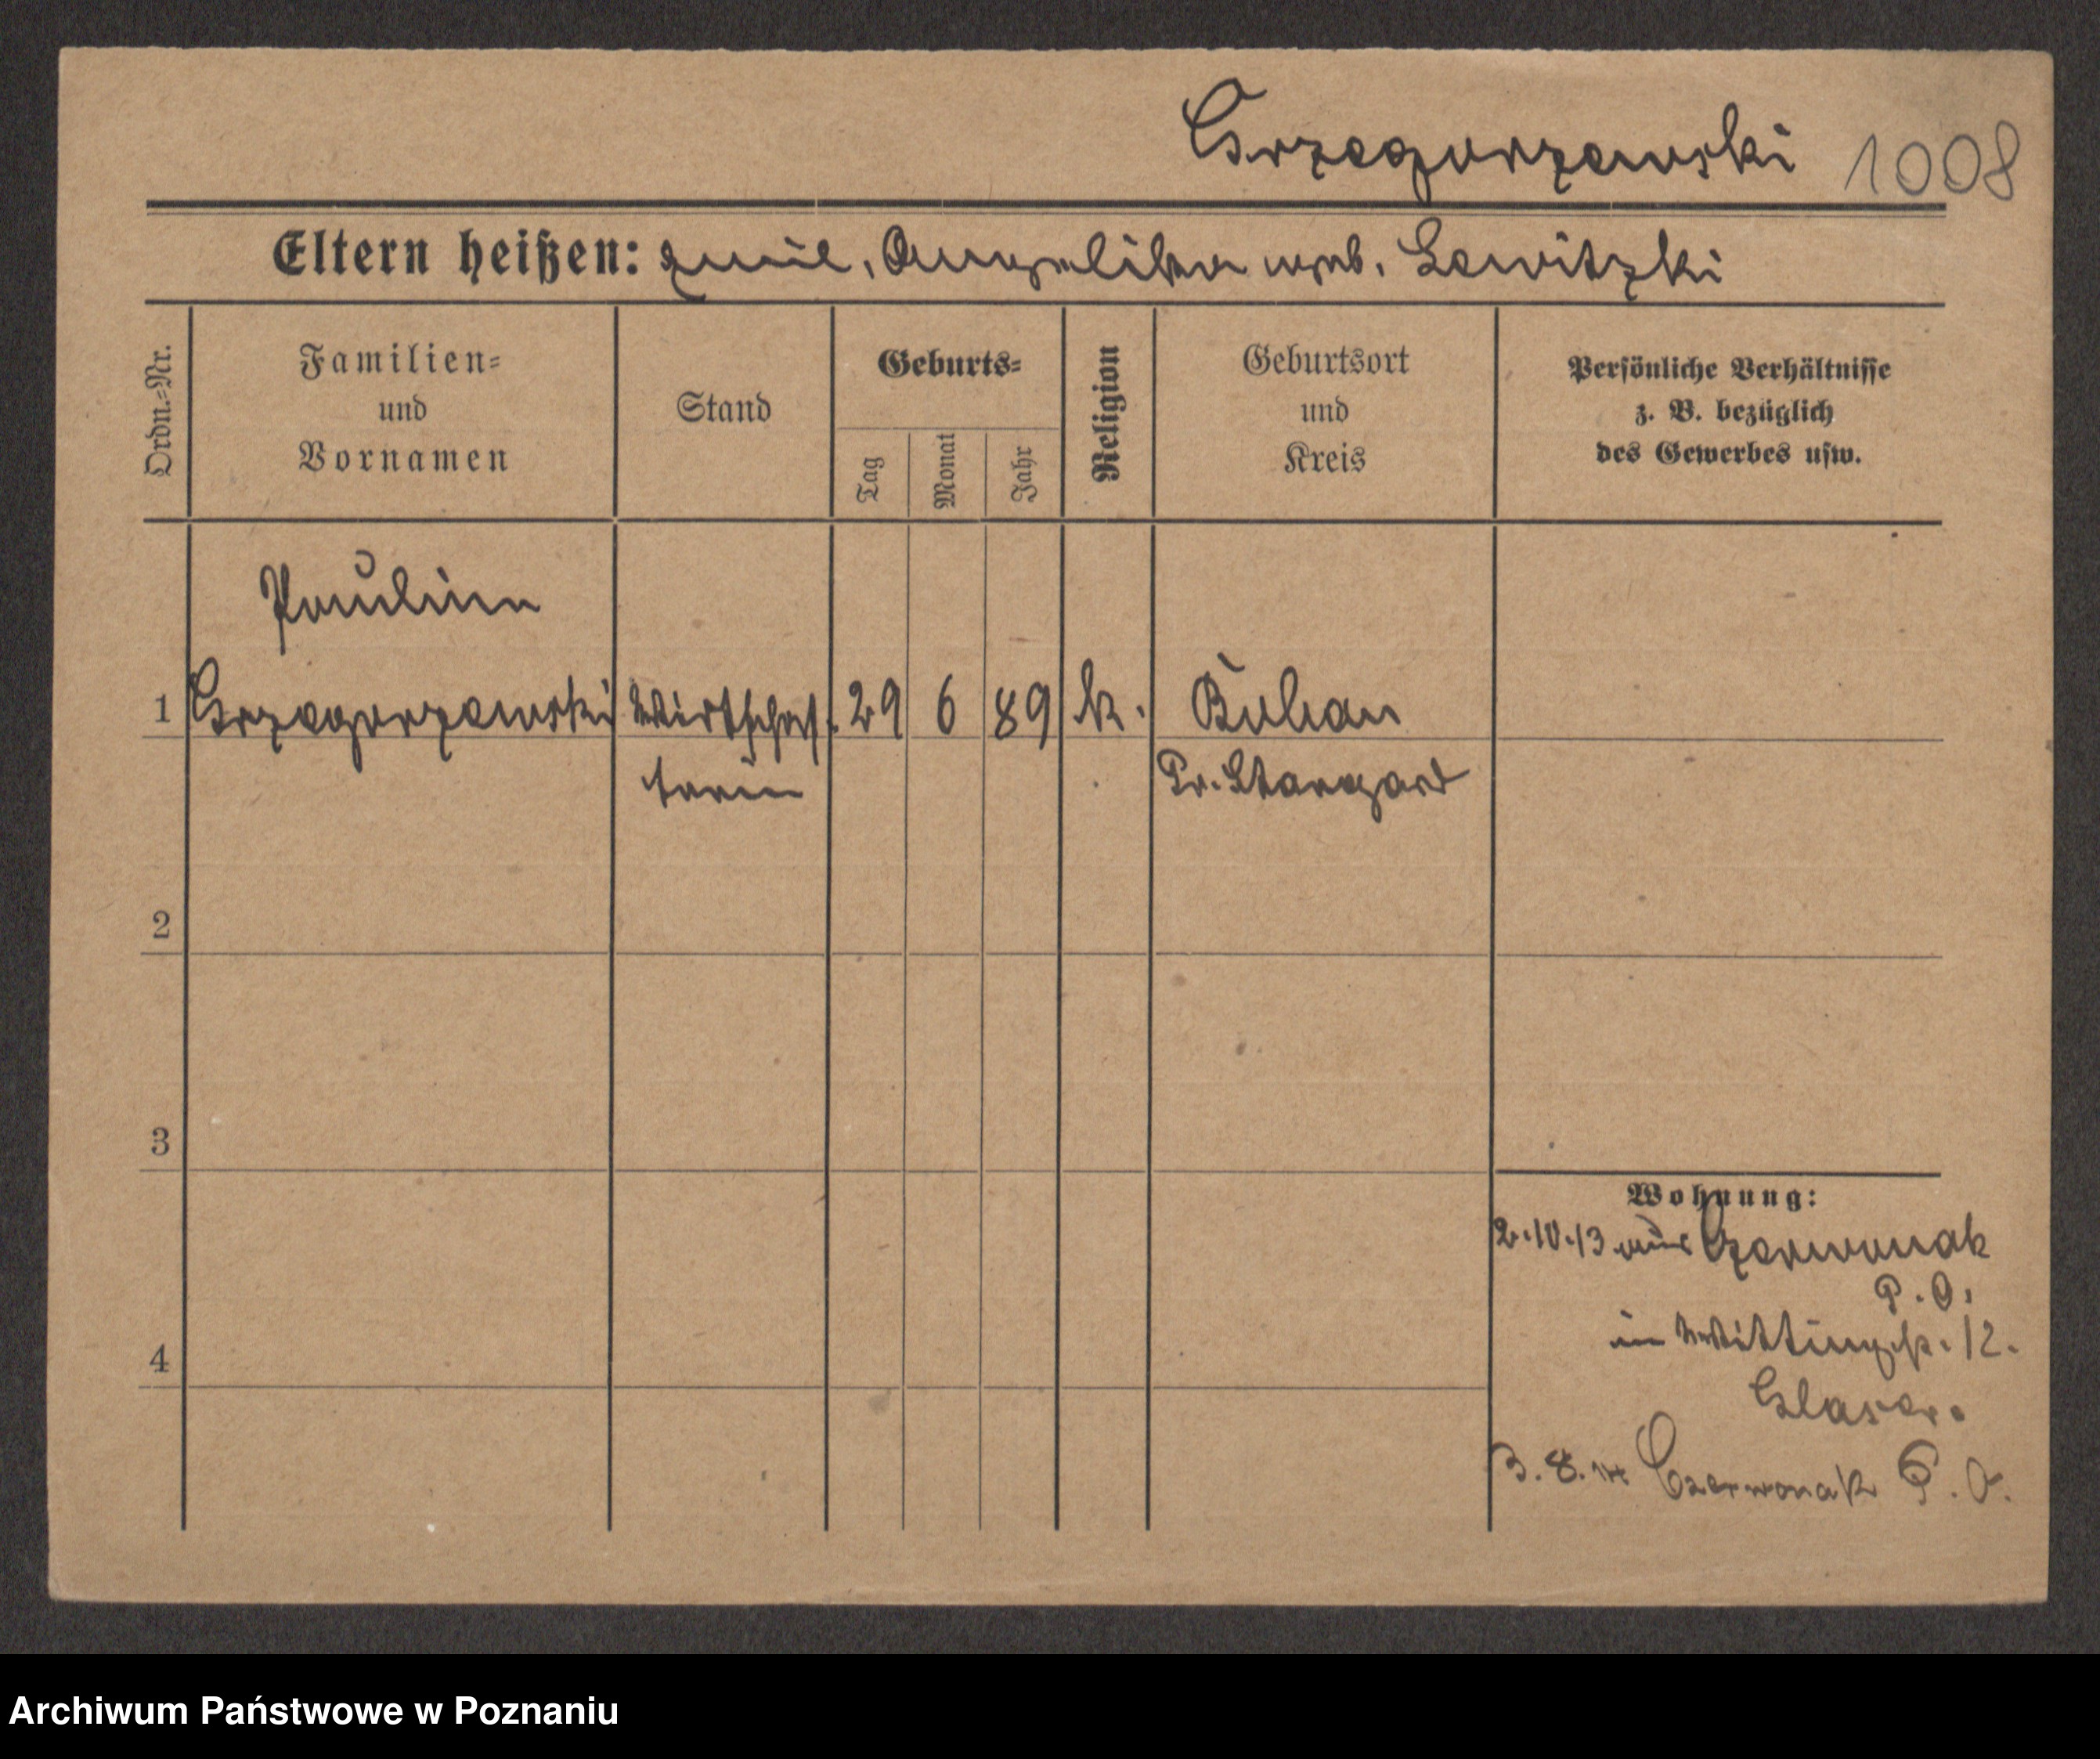 Grzegorzewski 1008
Eltern heißen: Emil, Angelika geb. Lewitzki
Ordn.-Nr.
Familien-
und
Vornamen
Stand
Geburts-
Tag
Monat
Jahr
Religion
Geburtsort
und
Kreis
Persönliche Verhältnisse
z. B. bezüglich
des Gewerbes usw.
Paulina
1 Grzegorzewski Wirtschaf- 29 6 89 k.
terin Pr. Stargard
2
3
4
Wohnung:
2.10.13 aus Czerwonak
P. O.
in Wittingstr. 12.
Glaser.
3. 8. 14 Czerwonak P. O.
Archiwum Państwowe w Poznaniu